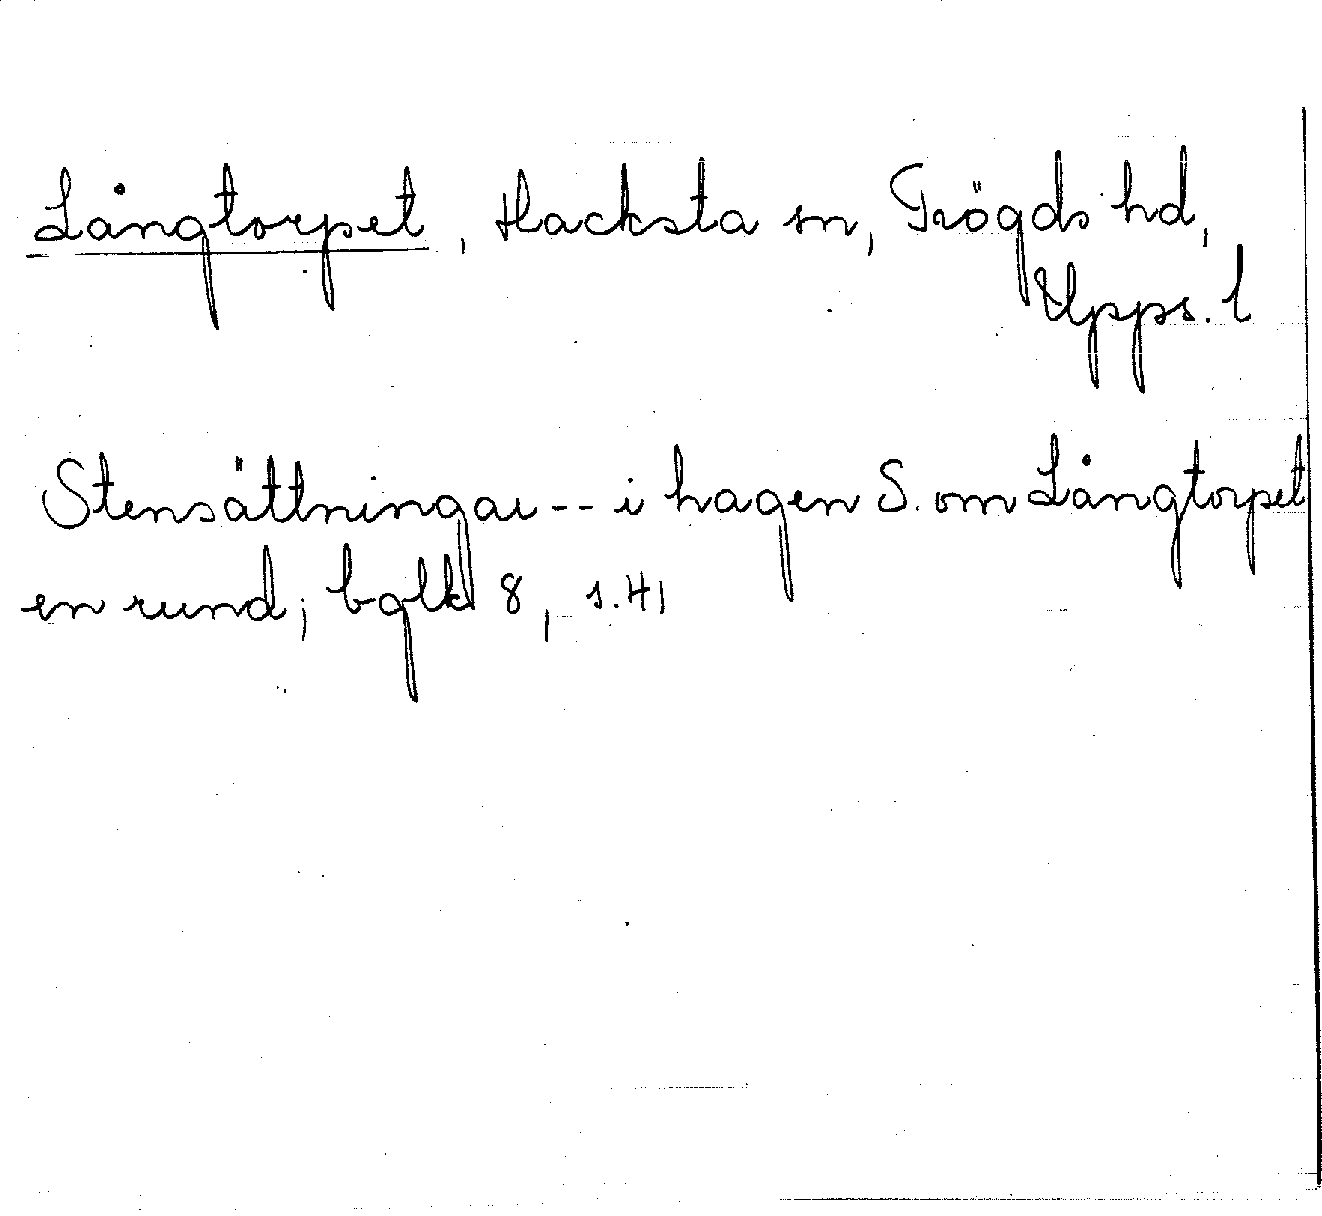 Långtorpet, Hacksta sn, Trögds hd,
Upps. l
Stensättningar -- i hagen S. om Långtorpet
en rund; bglk 8, s. 41